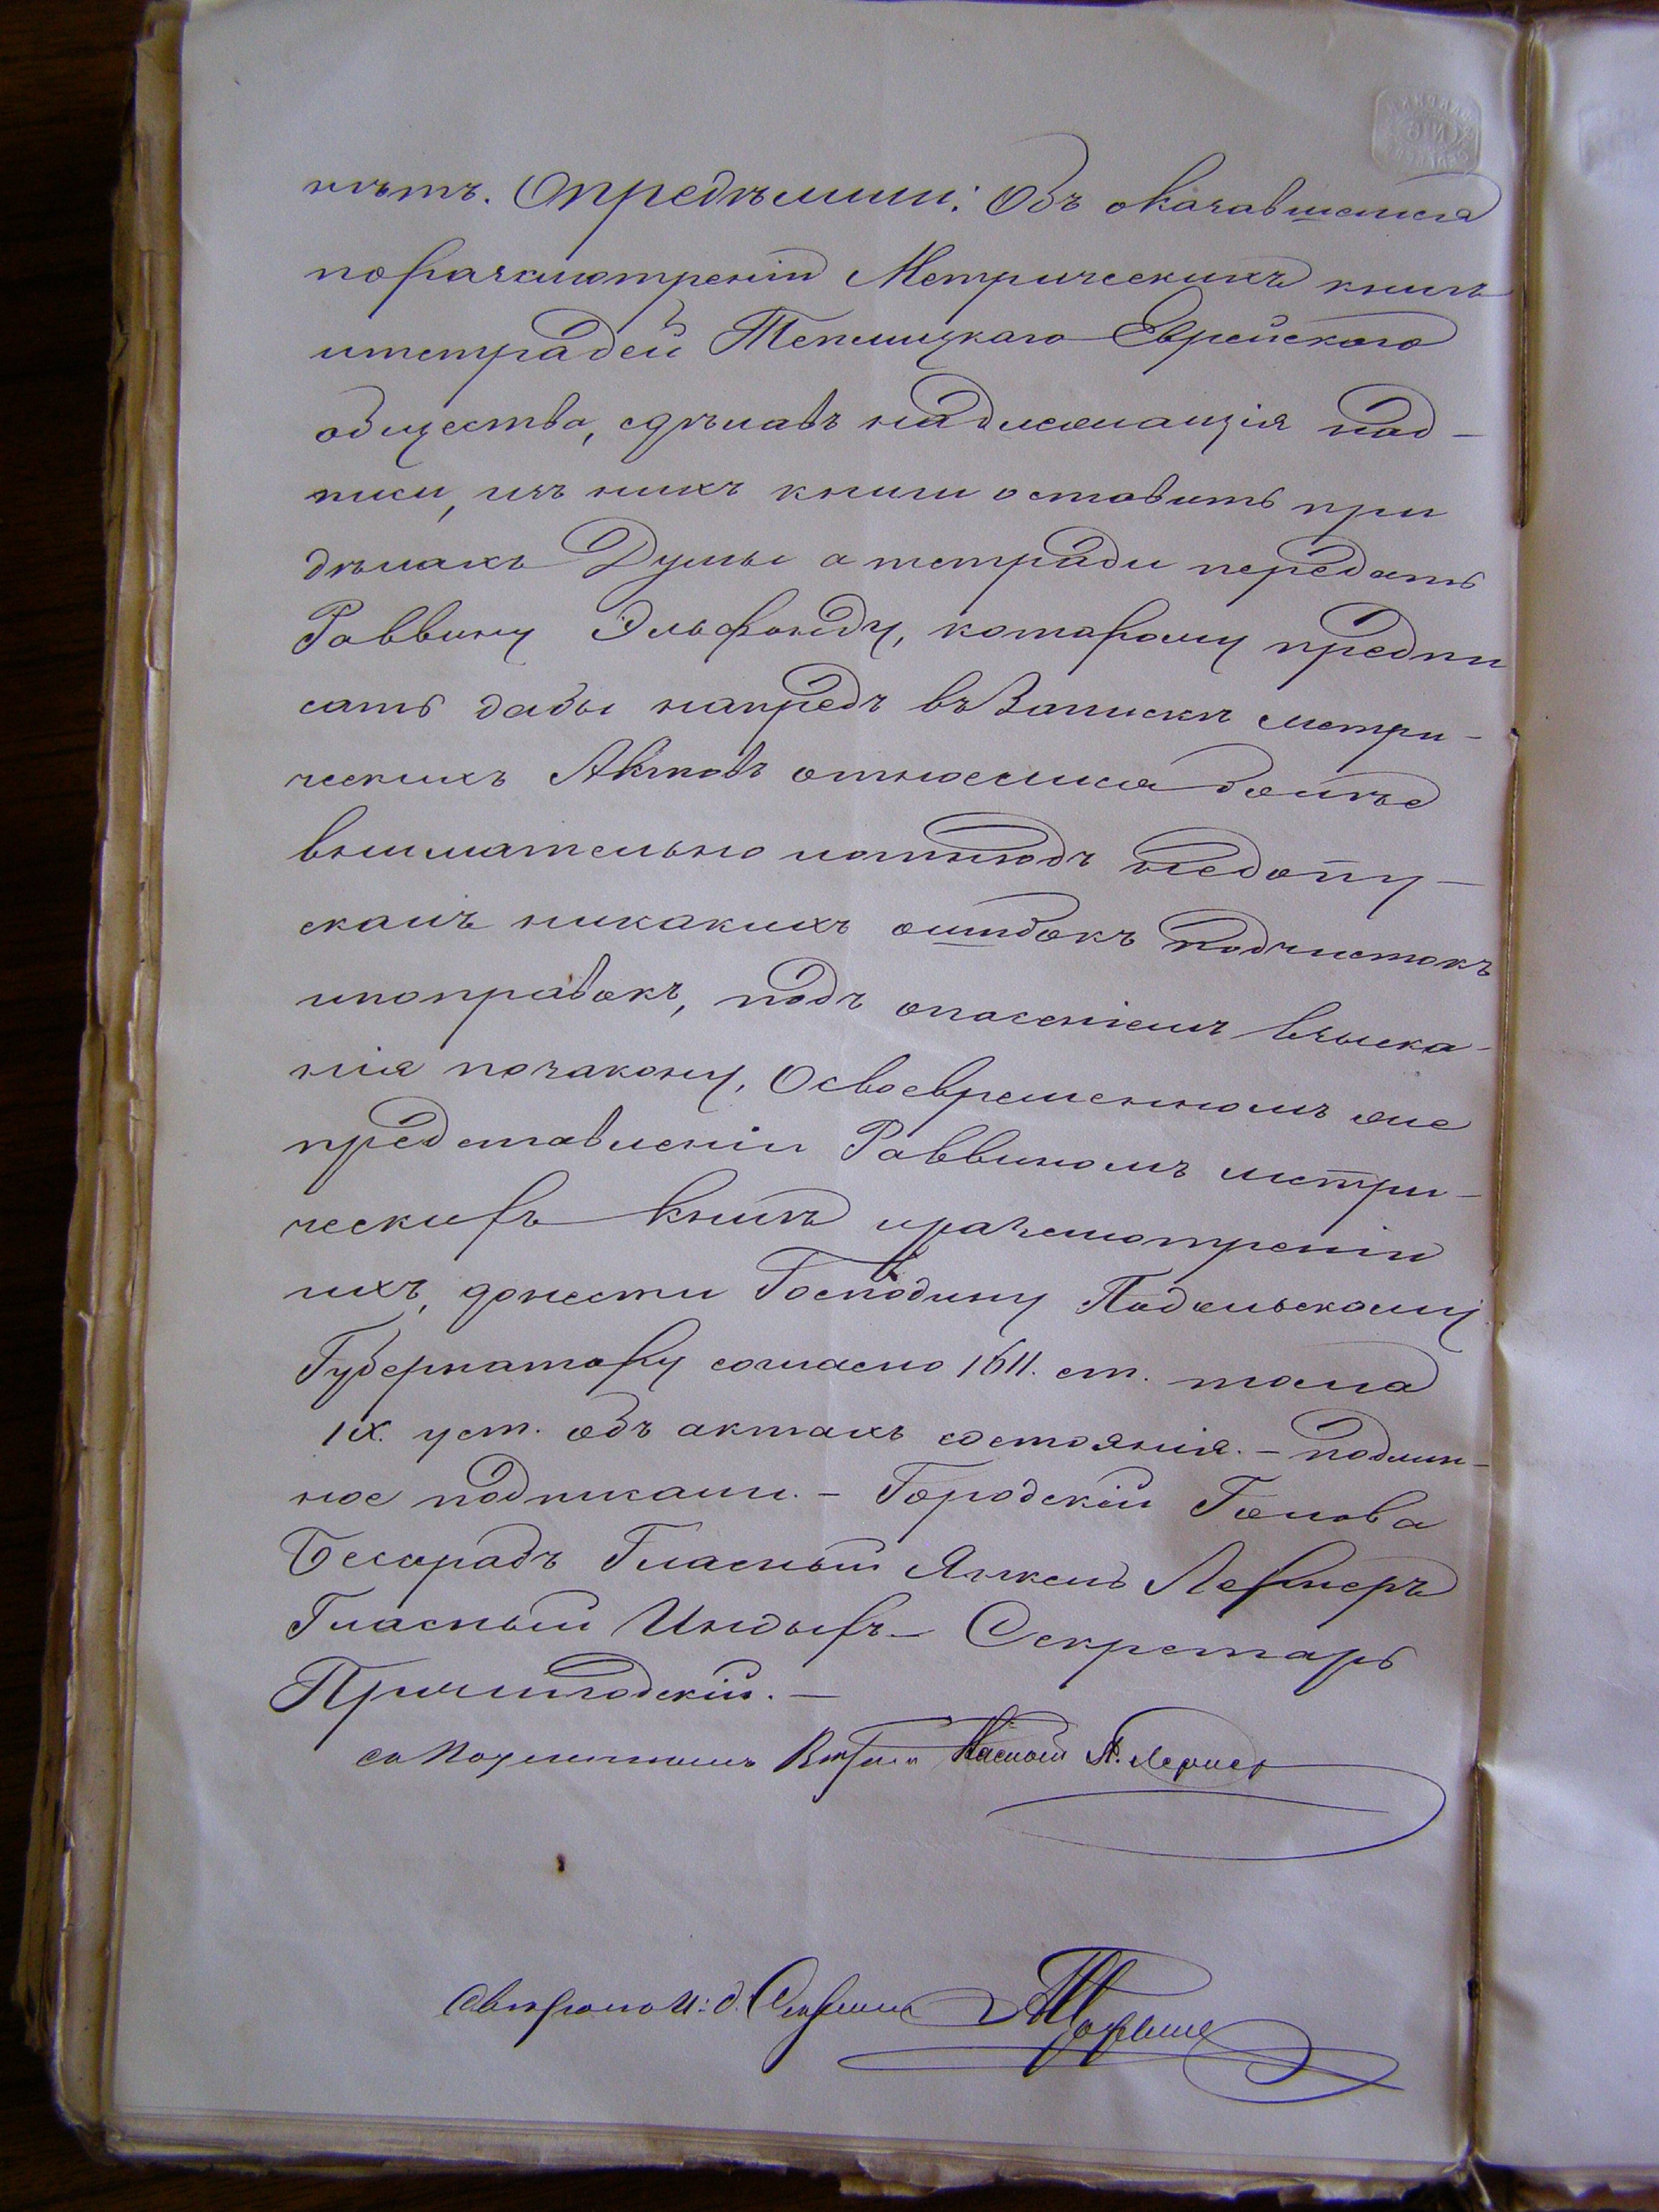 нѣтъ. Опредѣлили: Объ оказавшемся
поразсмотренію Метрическихъ книгъ
итетрадей Теплицкаго Еврейскаго
общества, сдѣлавъ надлежащія над-
писи, изъ нихъ книги оставить при
дѣлахъ Думы а тетради передать
Раввину Эльфонду, которому предпи
сать дабы напредъ въ Запискѣ метри-
ческихъ Актовъ относился болѣе
внимательно иотнюдъ недопу-
скалъ никакихъ ошибокъ подчистокъ
ипоправокъ, подъ опасеніемъ взыска-
нія позакону, Освоевременномъ же
представленіи Раввиномъ метри-
ческихъ книгъ иразсмотреніи
ихъ, донести Господину Подольскому
Губернатору согласно 1611. ст. тома
IX. уст. объ актахъ состоянія. - подлин-
ное подписали. - Городской Голова
Гласный Янкель Лернеръ
Гласный Секретарь
съ подлиннымъ Гласный Я. Лернер